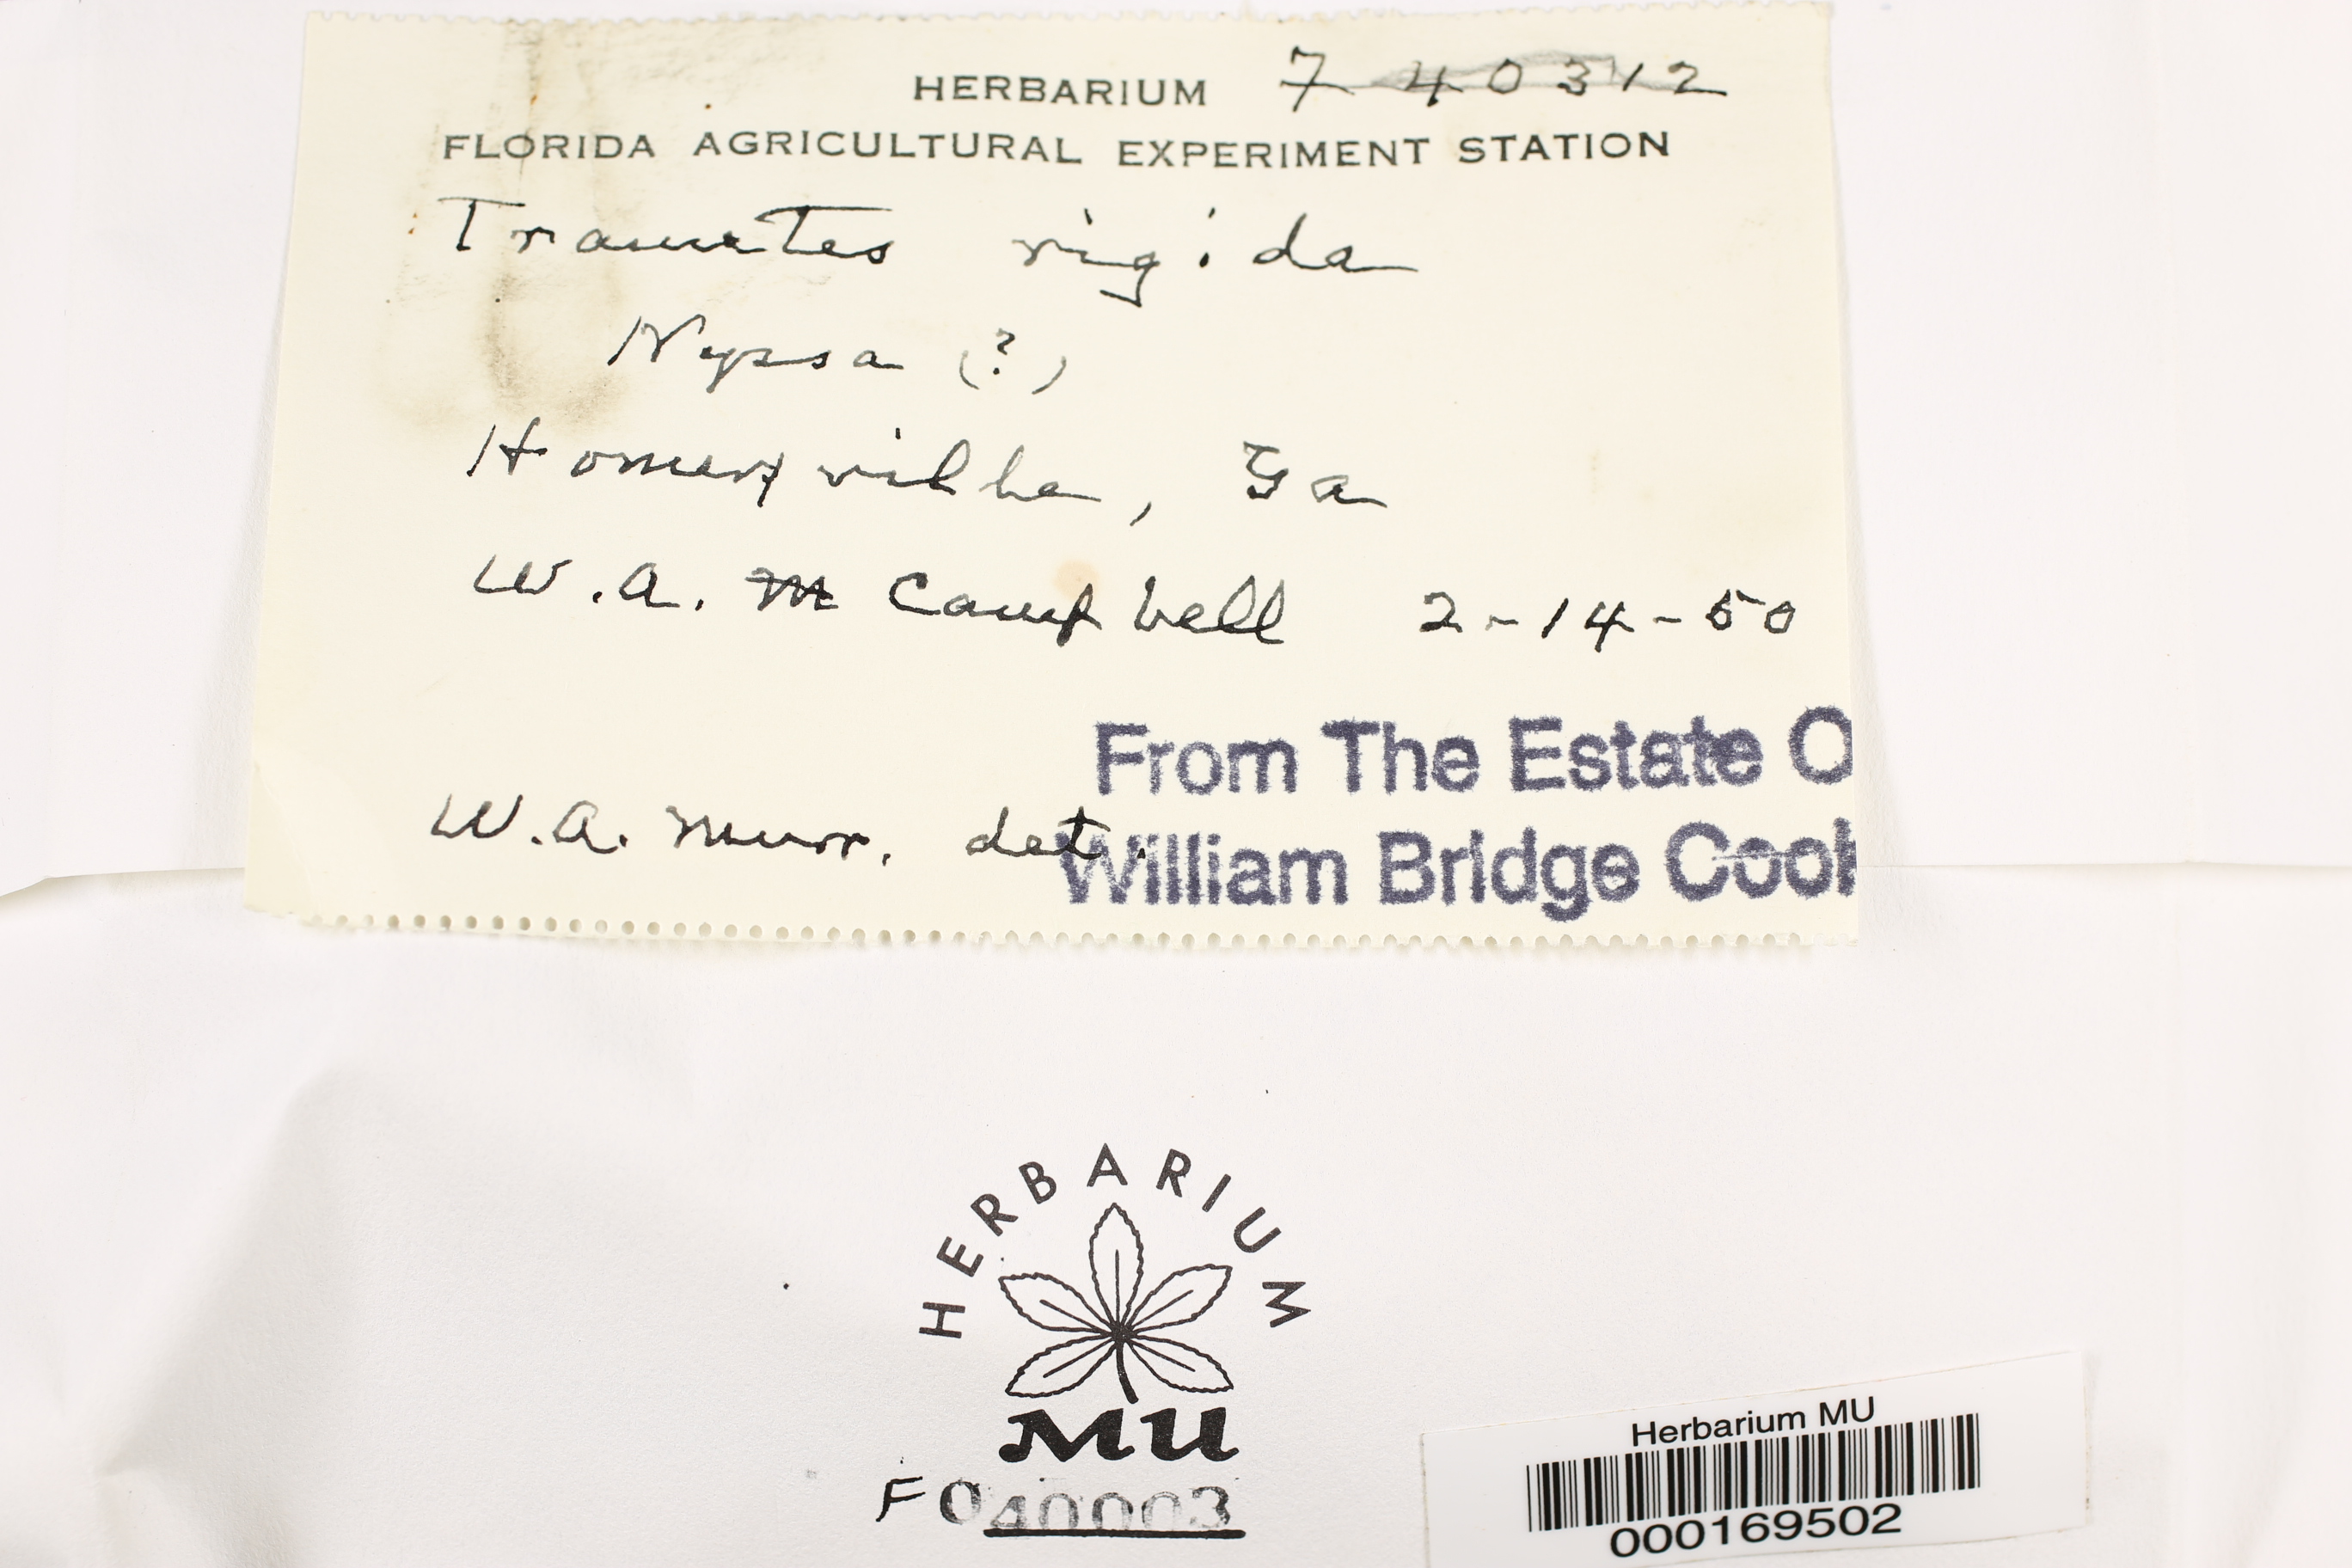 HERBARIUM 7 40312
FLORIDA AGRICULTURAL EXPERIMENT STATION
Trametes rigida
Nyssa (?)
Homerville, Ga
W.A. M Campbell 2-14-50
From The Estate O
W.A. Murr. det.
William Bridge Cook
HERBARIUM
MU
F040003
Herbarium MU
000169502